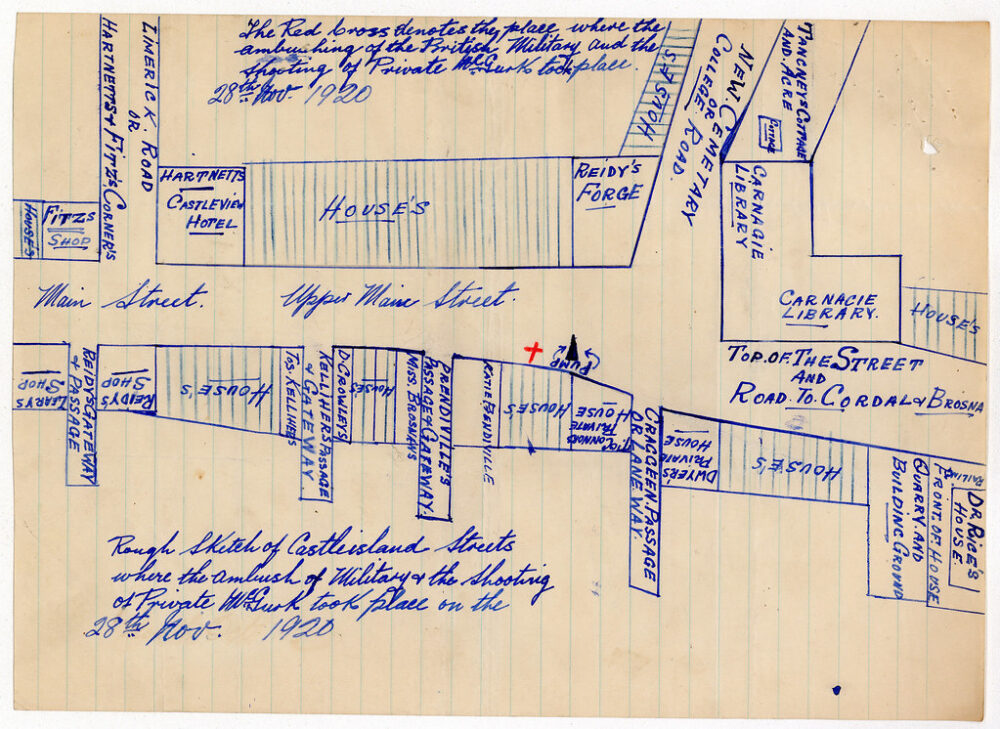 The Red Cross denotes the place where the
ambushing of the British Military and the
shooting of Private McGurk took place.
28th Nov. 1920
LIMERICK. ROAD
OR
HARTNETTS & FITZ'S CORNER'S
HOUSE'S
FITZS
SHOP
HARTNETTS
CASTLEVIEW
HOTEL
HOUSE'S
REIDY'S
FORGE
HOUSE'S
NEW. CEMETARY
OR
COLLEGE ROAD.
COTTAGE
AND. ACRE
COTTAGE
CARNAGIE
LIBRARY
CARNAGIE
LIBRARY.
HOUSE'S
Main Street. Upper Main Street.
TOP. OF. THE STREET
AND
ROAD. TO. CORDAL & BROSNA
LEARYS
SHOP
REIDYS GATEWAY
& PASSAGE
REIDYS
SHOP
HOUSE'S
TOS. KELLIHERS
KELLIHERS PASSAGE
& GATEWAY.
D CROWLEYS
HOUSES
MISS. BROSNANS
PRENDIVILLE'S
PASSAGE & GATEWAY.
KATIE PRENDIVILLE
HOUSE'S
PUMP
CONNORS
PRIVATE
HOUSE
CRAGGEEN. PASSAGE
OR LANEWAY.
DWYERS
PRIVATE
HOUSE
HOUSE'S
QUARRY. AND
BUILDING GROUND
FRONT. OF HOUSE
RAILING
DR. RICE'S
HOUSE.
Rough Sketch of Castleisland Streets
where the ambush of Military & the shooting
of Private McGurk took place on the
28th Nov. 1920.